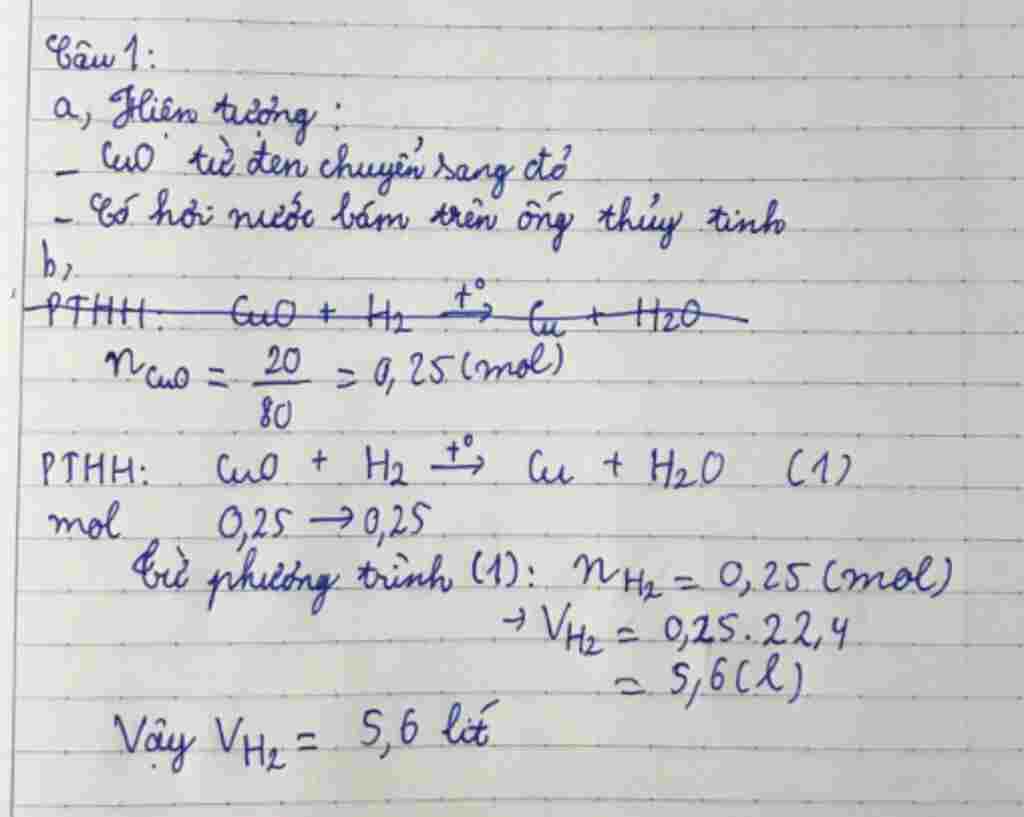 Câu 1:
a, Hiện tượng:
- CuO từ đen chuyển sang đỏ
- Có hơi nước bám trên ống thủy tinh
b,
PTHH: CuO + H2 t°→ Cu + H2O
nCuO = 20/80 = 0,25 (mol)
PTHH: CuO + H2 t°→ Cu + H2O (1)
mol 0,25 → 0,25
Từ phương trình (1): nH2 = 0,25 (mol)
→ VH2 = 0,25.22,4
= 5,6 (l)
Vậy VH2 = 5,6 lít